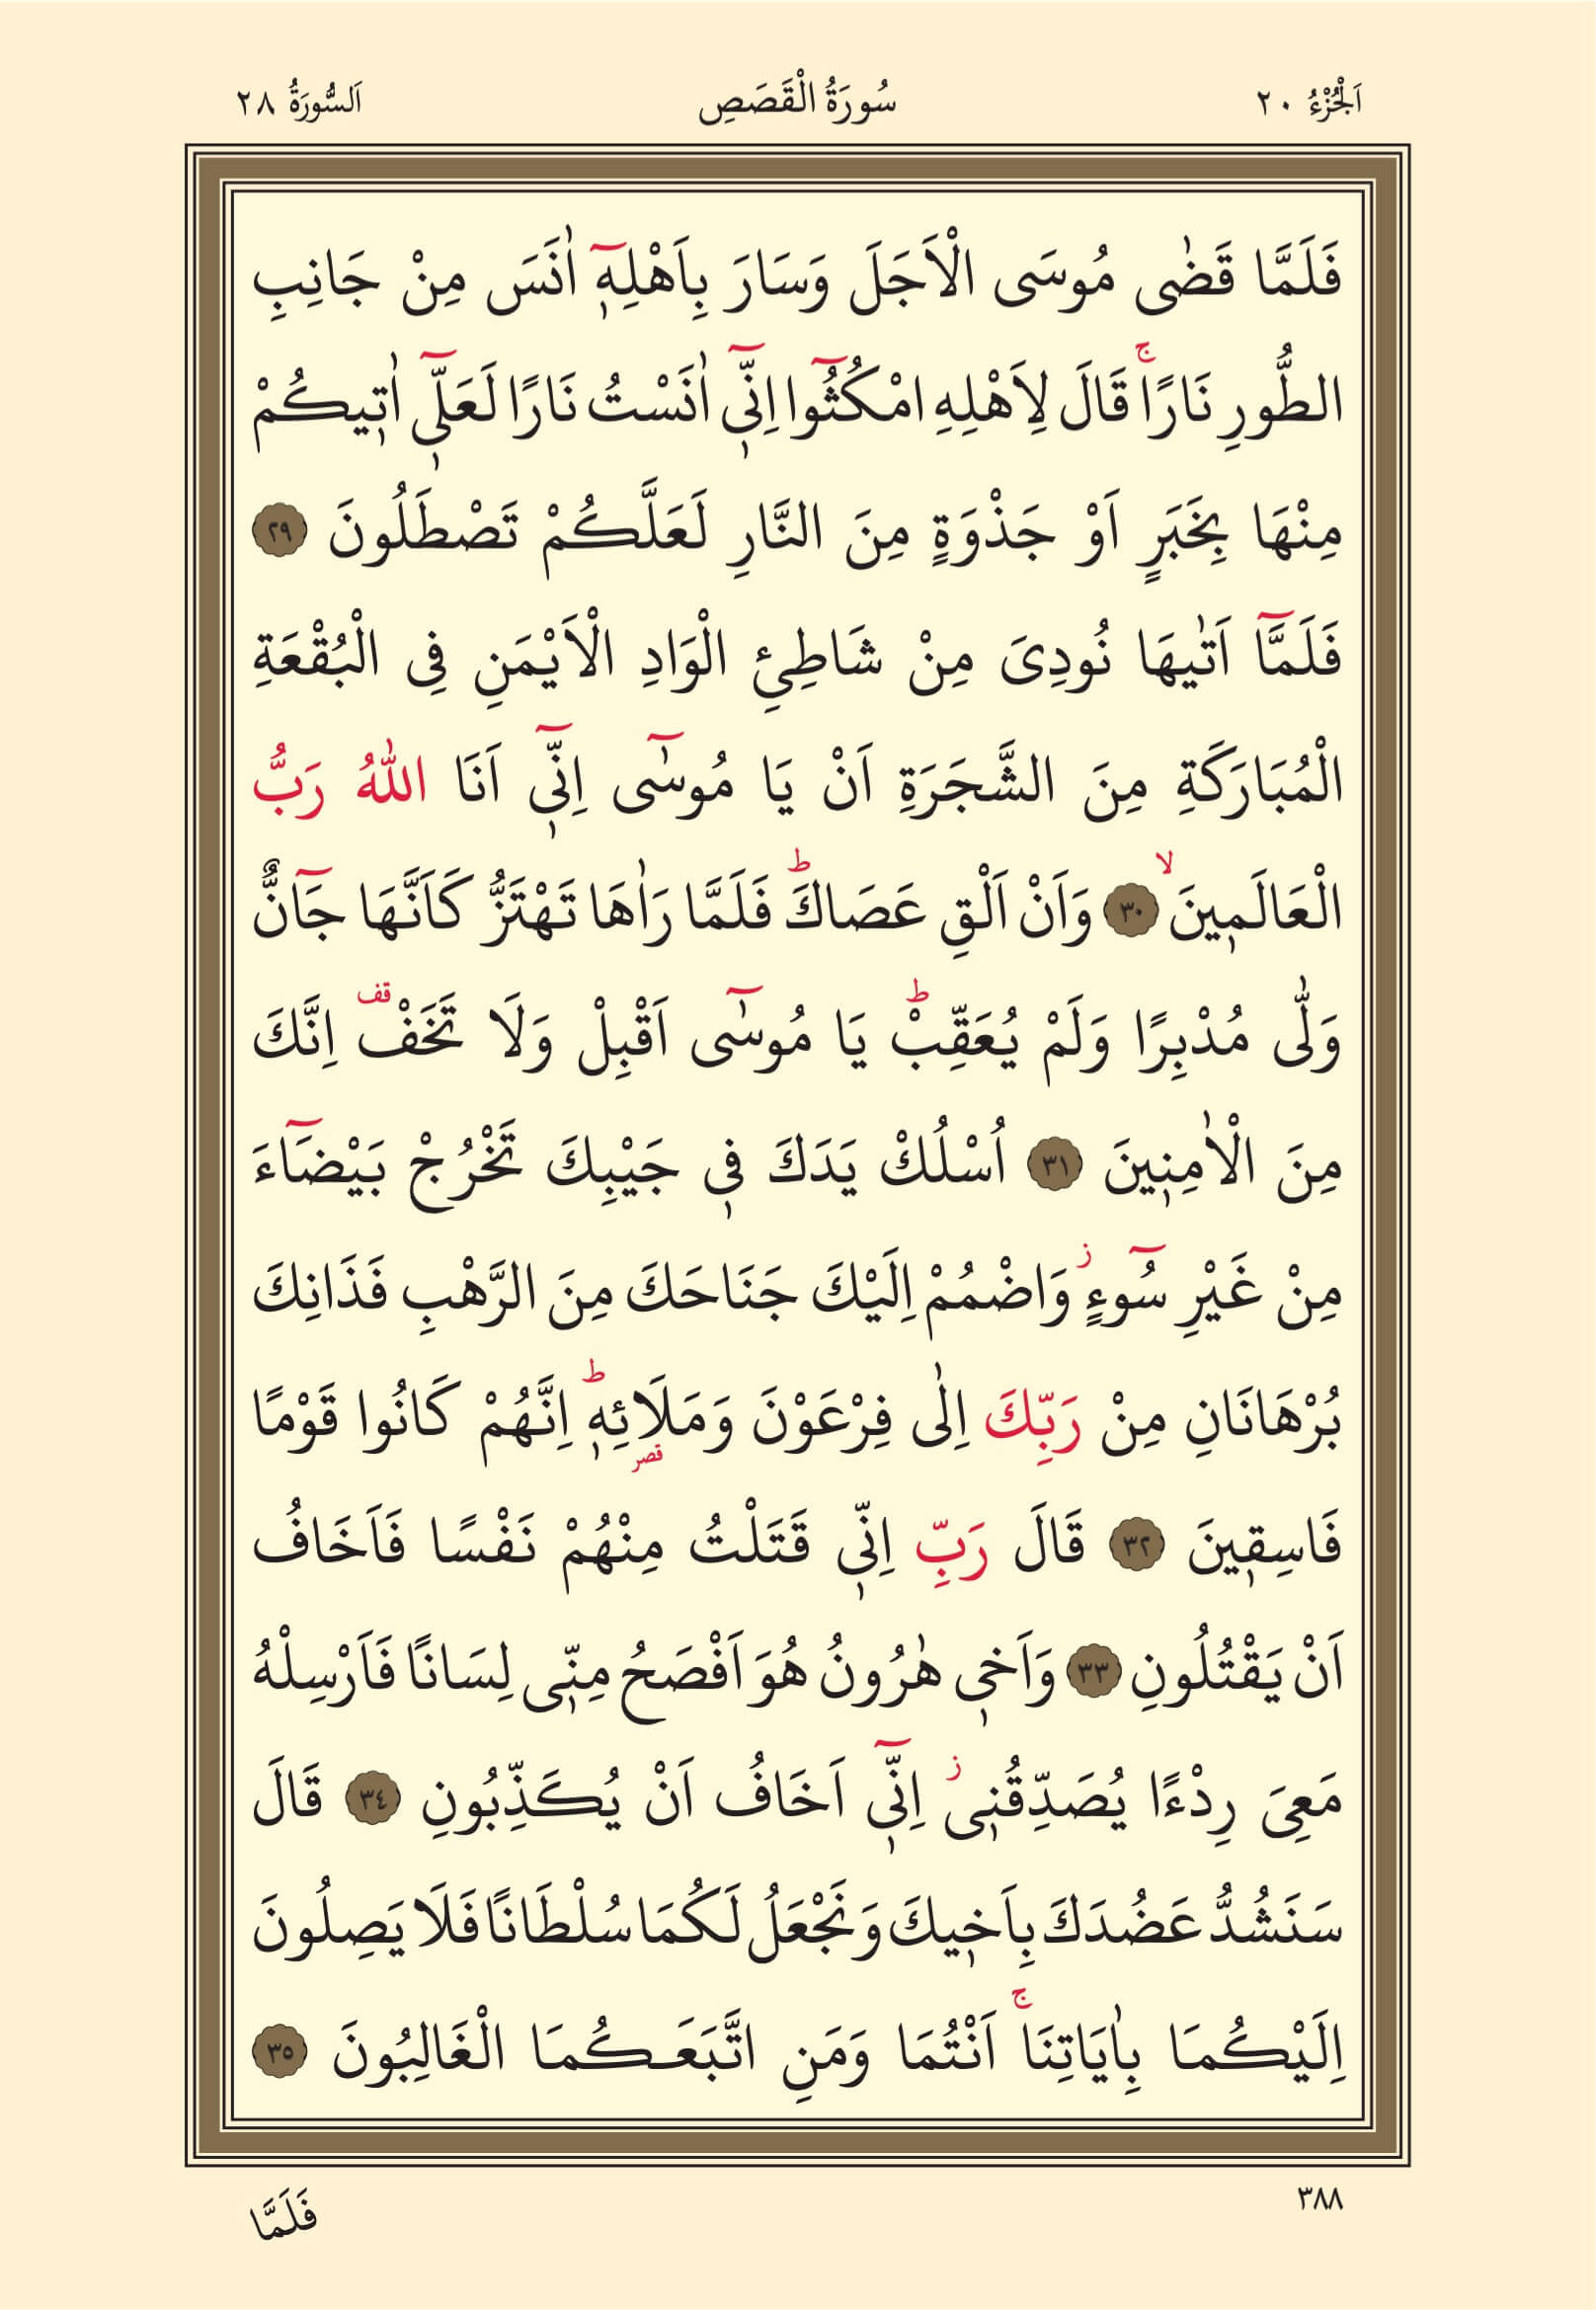 اَلْجُزْءُ ٢٠ سُورَةُ الْقَصَصِ اَلسُّورَةُ ٢٨
فَلَمَّا قَضٰى مُوسَى الْاَجَلَ وَسَارَ بِاَهْلِه۪ٓ اٰنَسَ مِنْ جَانِبِ
الطُّورِ نَارًاۚ قَالَ لِاَهْلِهِ امْكُثُٓوا اِنّ۪ٓي اٰنَسْتُ نَارًا لَعَلّ۪ٓي اٰت۪يكُمْ
مِنْهَا بِخَبَرٍ اَوْ جَذْوَةٍ مِنَ النَّارِ لَعَلَّكُمْ تَصْطَلُونَ ﴿٢٩﴾
فَلَمَّٓا اَتٰيهَا نُودِىَ مِنْ شَاطِئِ الْوَادِ الْاَيْمَنِ فِى الْبُقْعَةِ
الْمُبَارَكَةِ مِنَ الشَّجَرَةِ اَنْ يَا مُوسٰٓى اِنّ۪ٓي اَنَا اللّٰهُ رَبُّ
الْعَالَم۪ينَۙ ﴿٣٠﴾ وَاَنْ اَلْقِ عَصَاكَۜ فَلَمَّا رَاٰهَا تَهْتَزُّ كَاَنَّهَا جَٓانٌّ
وَلّٰى مُدْبِرًا وَلَمْ يُعَقِّبْۜ يَا مُوسٰٓى اَقْبِلْ وَلَا تَخَفْ۠ قف اِنَّكَ
مِنَ الْاٰمِن۪ينَ ﴿٣١﴾ اُسْلُكْ يَدَكَ ف۪ي جَيْبِكَ تَخْرُجْ بَيْضَٓاءَ
مِنْ غَيْرِ سُٓوءٍۘ وَاضْمُمْ اِلَيْكَ جَنَاحَكَ مِنَ الرَّهْبِ فَذَانِكَ
بُرْهَانَانِ مِنْ رَبِّكَ اِلٰى فِرْعَوْنَ وَمَلَا۬ئِه۪ۜ قصر اِنَّهُمْ كَانُوا قَوْمًا
فَاسِق۪ينَ ﴿٣٢﴾ قَالَ رَبِّ اِنّ۪ي قَتَلْتُ مِنْهُمْ نَفْسًا فَاَخَافُ
اَنْ يَقْتُلُونِ ﴿٣٣﴾ وَاَخ۪ي هٰرُونُ هُوَ اَفْصَحُ مِنّ۪ي لِسَانًا فَاَرْسِلْهُ
مَعِىَ رِدْءًا يُصَدِّقُن۪يۘ اِنّ۪ٓي اَخَافُ اَنْ يُكَذِّبُونِ ﴿٣٤﴾ قَالَ
سَنَشُدُّ عَضُدَكَ بِاَخ۪يكَ وَنَجْعَلُ لَكُمَا سُلْطَانًا فَلَا يَصِلُونَ
اِلَيْكُمَا بِاٰيَاتِنَاۚ اَنْتُمَا وَمَنِ اتَّبَعَكُمَا الْغَالِبُونَ ﴿٣٥﴾
٣٨٨ فَلَمَّا